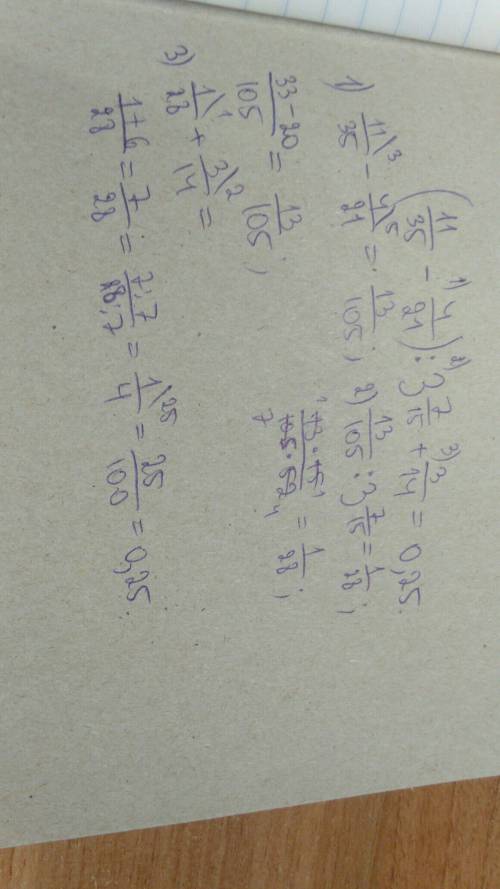 (11/35 - 4/21) : 3 7/15 + 3/14 = 0,25.
1) 11/35 - 4/21 = 13/105; 2) 13/105 : 3 7/15 = 1/28;
33-20/105 = 13/105; 13·15/105·52 = 1/28;
3) 1/28 + 3/14 =
1+6/28 = 7/28 = 7:7/28:7 = 1/4 = 25/100 = 0,25.